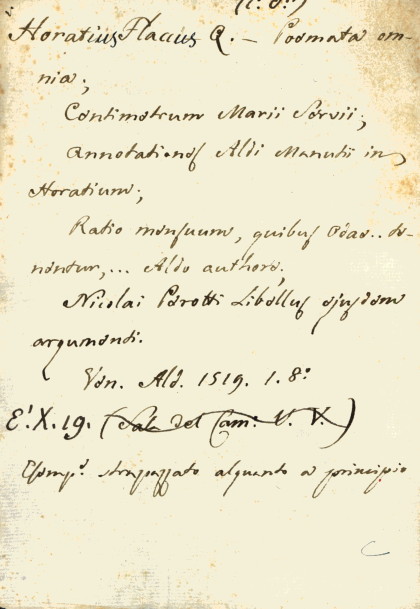 (c. 8.°)
Horatius Flaccus Q. — Poemata om-
nia;
Centimetrum Marii Servii;
Annotationes Aldi Manutii in
Horatium;
Ratio mensuum, quibus Odae.. te-
nentur,... Aldo authore;
Nicolai Perotti Libellus ejusdem
argumenti.
Ven. Ald. 1519. 1. 8°
E'.X.19. (Sala del Cam: V. V.)
Esemp.e strapazzato alquanto a principio